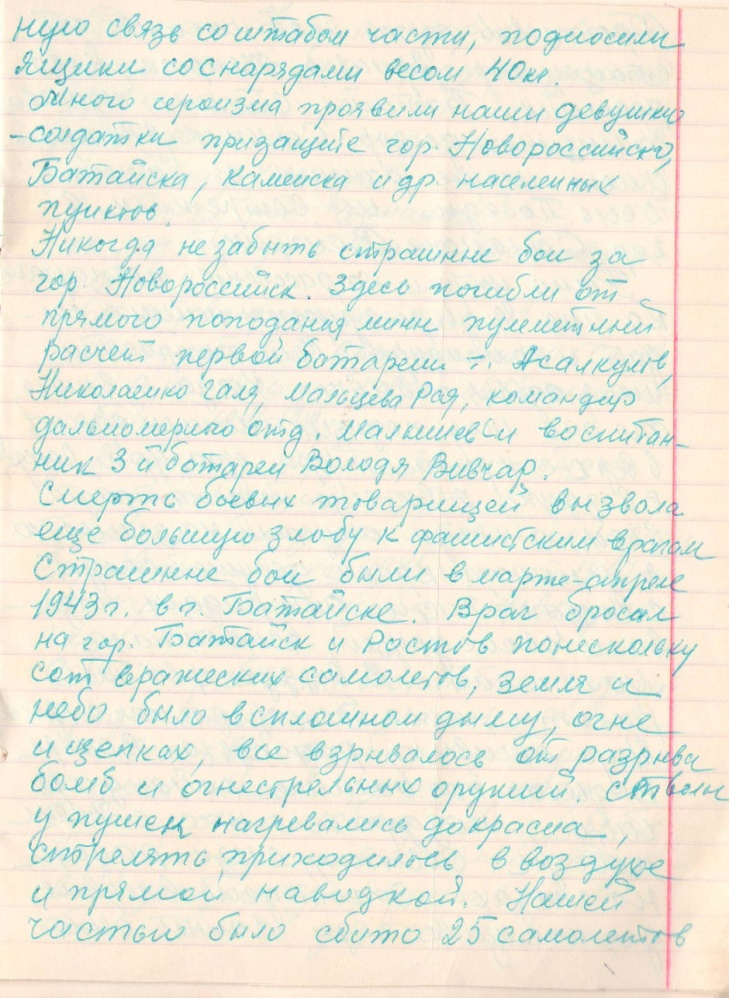 ную связь со штабом части, подносили
ящики со снарядами весом 40 кг.
Много героизма проявили наши девушки
-солдатки призащите гор. Новороссийска,
Батайска, Каменска и др. населенных
пунктов.
Никогда незабыть страшные бои за
гор. Новороссийск. Здесь погибли от
прямого поподания мины пулеметный
расчет первой батареи -: Асалкулов,
Николаенко Галя, Мальцева Рая, командир
дальномерного отд. Малышев и воспитан-
ник 3й батареи Володя Вивчар.
Смерть боевых товарищей вызвола
еще большую злобу к фашистским врагам
Страшные бои были в марте-апреле
1943 г. в г. Батайске. Враг бросал
на гор. Батайск и Ростов понескольку
сот вражеских самолетов, земля и
небо было в сплошном дыму, огне
и щепках, все взрывалось от разрыва
бомб и огнестрельных оружий. Стволы
у пушек нагревались докрасна,
стрелять приходилось в воздухе
и прямой наводкой. Нашей
частью было сбито 25 самолетов